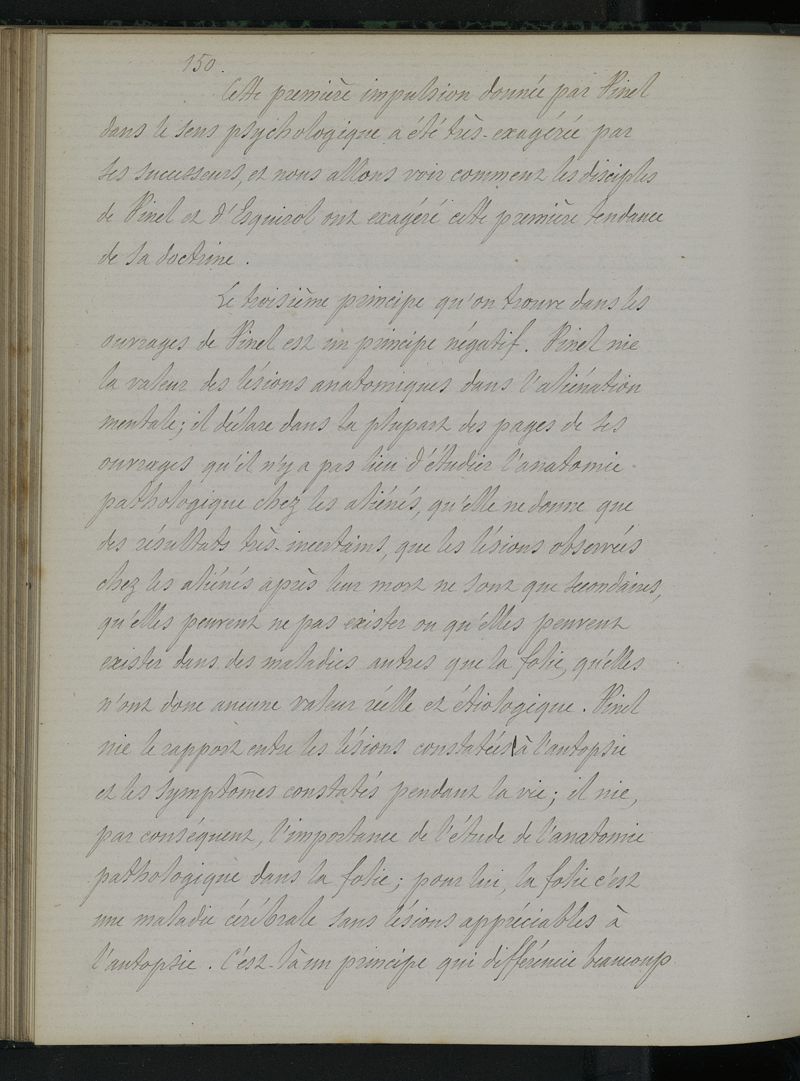 150.
Cette première impulsion donnée par Pinel
dans le sens psychologique a été très-exagérée par
ses successeurs, et nous allons voir comment les disciples
de Pinel et d'Esquirol ont exagéré cette première tendance
de sa doctrine.
Le troisième principe qu'on trouve dans les
ouvrages de Pinel est un principe négatif. Pinel nie
la valeur des lésions anatomiques dans l'aliénation
mentale; il déclare dans la plupart des pages de ses
ouvrages qu'il n'y a pas lieu d'étudier l'anatomie
pathologique chez les aliénés, qu'elle ne donne que
des résultats très-incertains, que les lésions observées
chez les aliénés après leur mort ne sont que secondaires,
qu'elles peuvent ne pas exister ou qu'elles peuvent
exister dans des maladies autres que la folie, qu'elles
n'ont donc aucune valeur réelle et étiologique. Pinel
nie le rapport entre les lésions constatées à l'autopsie
et les symptômes constatés pendant la vie; il nie,
par conséquent, l'importance de l'étude de l'anatomie
pathologique dans la folie; pour lui, la folie c'est
une maladie cérébrale sans lésions appréciables à
l'autopsie. C'est-là un principe qui différencie beaucoup